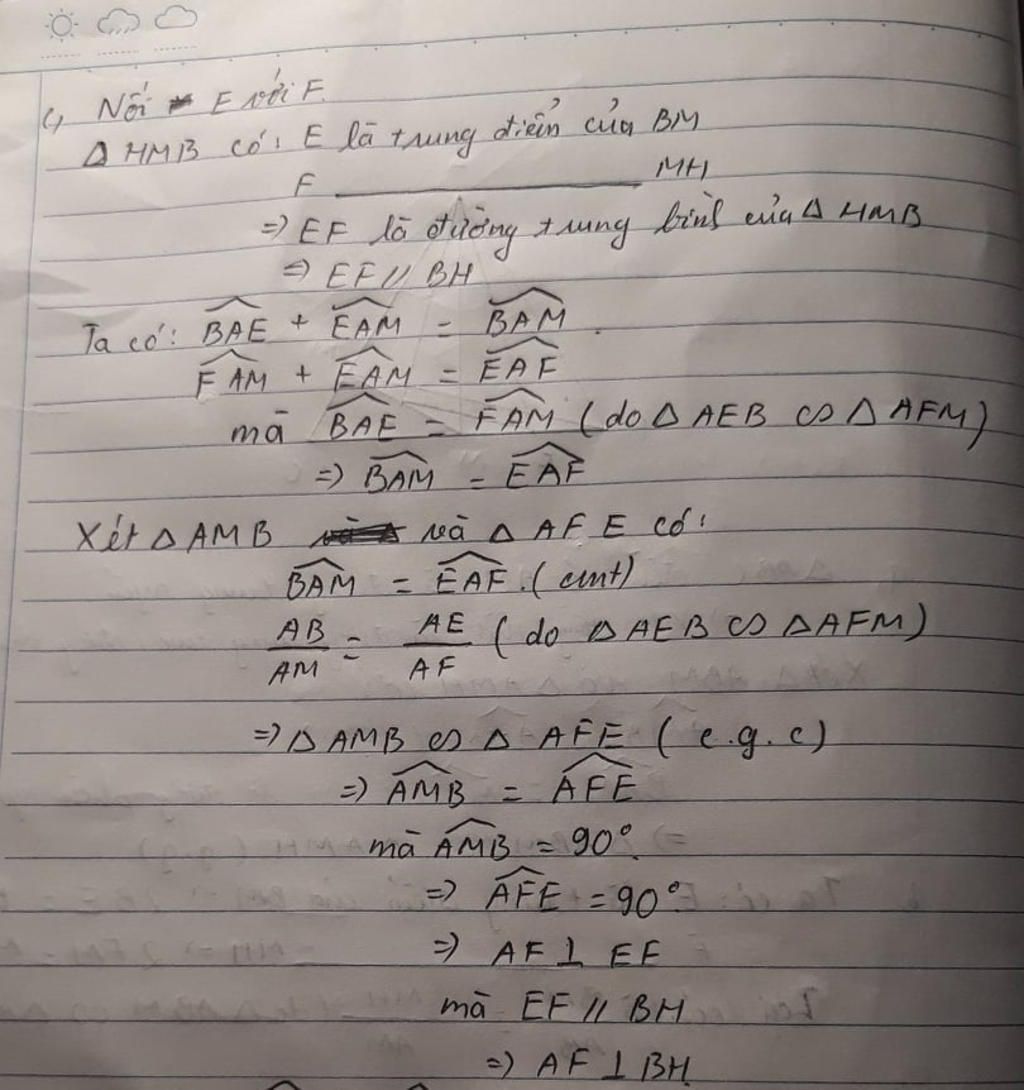 c, Nối E với F.
Δ HMB có: E là trung điểm của BM
F ———————— MH
=> EF là đường trung bình của Δ HMB
=> EF // BH
Ta có: \widehat{BAE} + \widehat{EAM} = \widehat{BAM}.
\widehat{FAM} + \widehat{EAM} = \widehat{EAF}
mà \widehat{BAE} = \widehat{FAM} (do Δ AEB ∽ Δ AFM)
=> \widehat{BAM} = \widehat{EAF}
Xét Δ AMB và Δ AFE có:
\widehat{BAM} = \widehat{EAF}. (cmt)
AB/AM = AE/AF (do Δ AEB ∽ Δ AFM)
=> Δ AMB ∽ Δ AFE (c.g.c)
=> \widehat{AMB} = \widehat{AFE}
mà \widehat{AMB} = 90°.
=> \widehat{AFE} = 90°
=> AF ⊥ EF
mà EF // BH
=> AF ⊥ BH